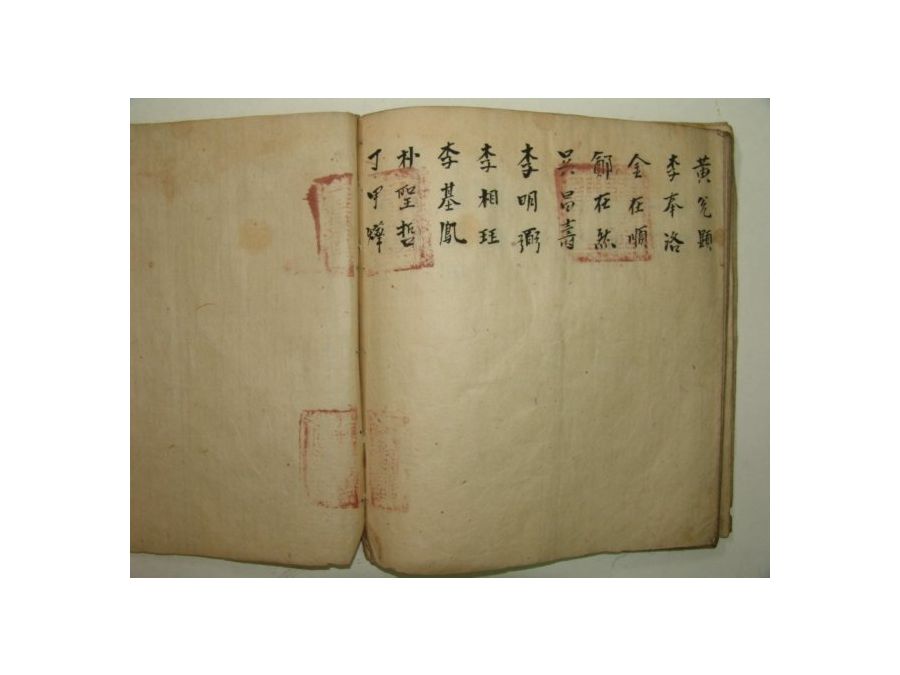 黃兌顯
李奉洛
金在順
鄭在然
吳昌壽
李明弼
李相珏
李基鳳
朴聖哲
丁甲